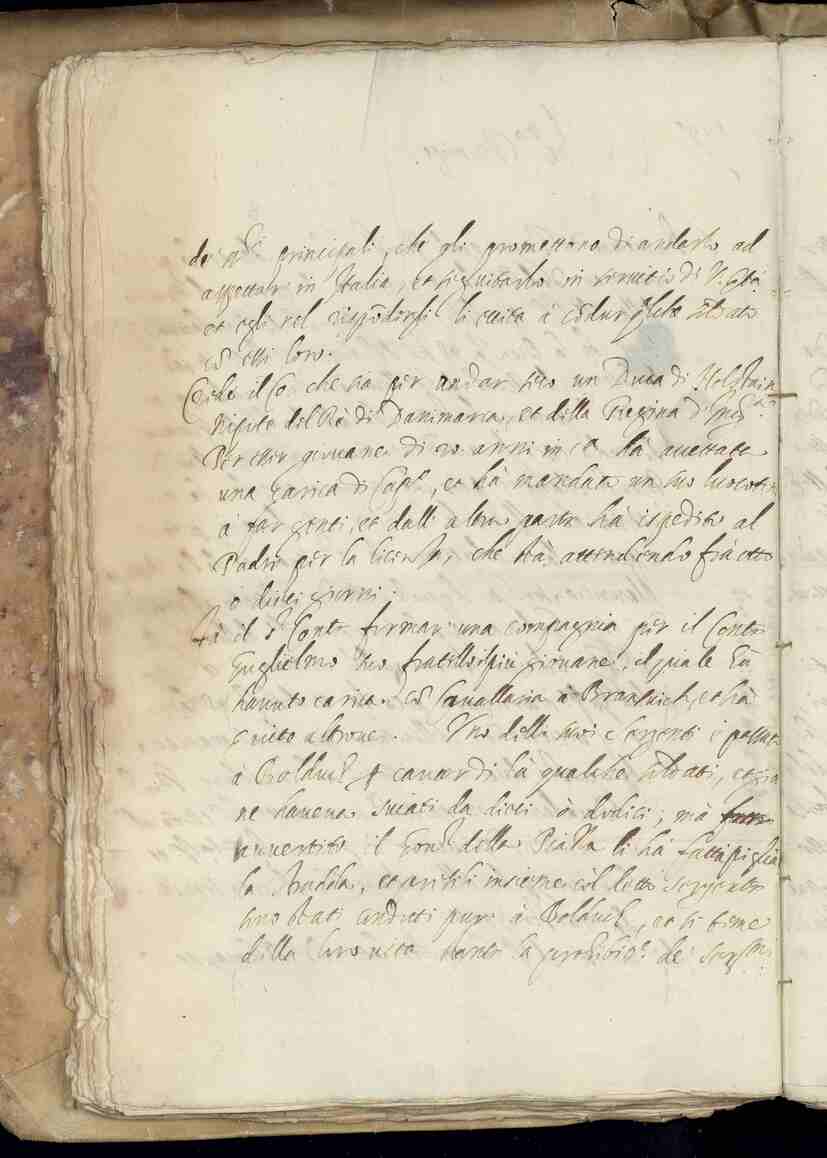 de' più principali, che gli promettono di andarlo ad
aspettar in Italia, et seguitarlo in servitio di V. Stà
et egli nel rispõdergli li eccita à cõdur qualche soldato
cõ essi loro.
Crede il S.r che sia per andar seco un Duca di Holstain
Nipote del Rè di Danimarca, et della Regina d'Ing.ra
Per esser giovane di 20 anni in ca hà accettato
una carica di Cap.o, et hà mandato un suo luocoten
à far genti, et dall' altra parte hà ispedito al
Padre per la licenza, che stà attendendo frà otto
o dieci giorni.
Fà il S.r Conte formar una compagnia per il Conte
Guglielmo suo fratello più giovane, il quale
havuto carica cõ Cavallaria à Bransuich, et hà
servito altrove. Uno delli suoi sargenti è passato
à Bolduch p cavar di là qualche soldati, et già
ne haveva sviati da dieci ò dodici; mà
avvertito il Gov.r della Piazza li hà fatti pigliar
la strada, et arestati insieme col detto sergente
sono stati condotti pure à Bolduch, et si teme
della loro vita stante la prohibit.e de' Ser.mi